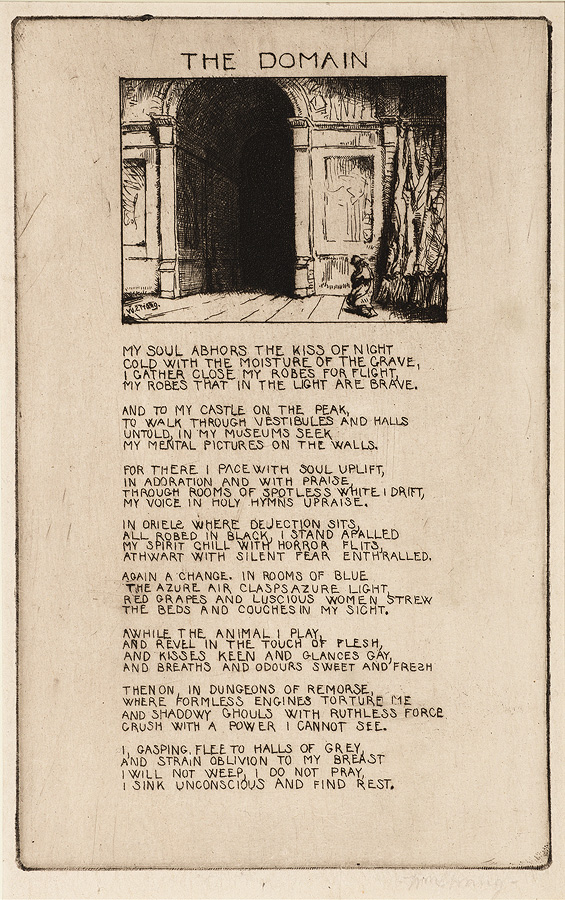 THE DOMAIN
MY SOUL ABHORS THE KISS OF NIGHT
COLD WITH THE MOISTURE OF THE GRAVE,
I GATHER CLOSE MY ROBES FOR FLIGHT,
MY ROBES THAT IN THE LIGHT ARE BRAVE.
AND TO MY CASTLE ON THE PEAK,
TO WALK THROUGH VESTIBULES AND HALLS
UNTOLD, IN MY MUSEUMS SEEK
MY MENTAL PICTURES ON THE WALLS.
FOR THERE I PACE WITH SOUL UPLIFT,
IN ADORATION AND WITH PRAISE,
THROUGH ROOMS OF SPOTLESS WHITE I DRIFT,
MY VOICE IN HOLY HYMNS UPRAISE.
IN ORIELS WHERE DEJECTION SITS,
ALL ROBED IN BLACK, I STAND APALLED
MY SPIRIT CHILL WITH HORROR FLITS,
ATHWART WITH SILENT FEAR ENTHRALLED.
AGAIN A CHANGE. IN ROOMS OF BLUE
THE AZURE AIR CLASPS AZURE LIGHT,
RED GRAPES AND LUSCIOUS WOMEN STREW
THE BEDS AND COUCHES IN MY SIGHT.
AWHILE THE ANIMAL I PLAY,
AND REVEL IN THE TOUCH OF FLESH,
AND KISSES KEEN AND GLANCES GAY,
AND BREATHS AND ODOURS SWEET AND FRESH
THEN ON, IN DUNGEONS OF REMORSE,
WHERE FORMLESS ENGINES TORTURE ME
AND SHADOWY GHOULS WITH RUTHLESS FORCE
CRUSH WITH A POWER I CANNOT SEE.
I, GASPING, FLEE TO HALLS OF GREY,
AND STRAIN OBLIVION TO MY BREAST
I WILL NOT WEEP, I DO NOT PRAY,
I SINK UNCONSCIOUS AND FIND REST.